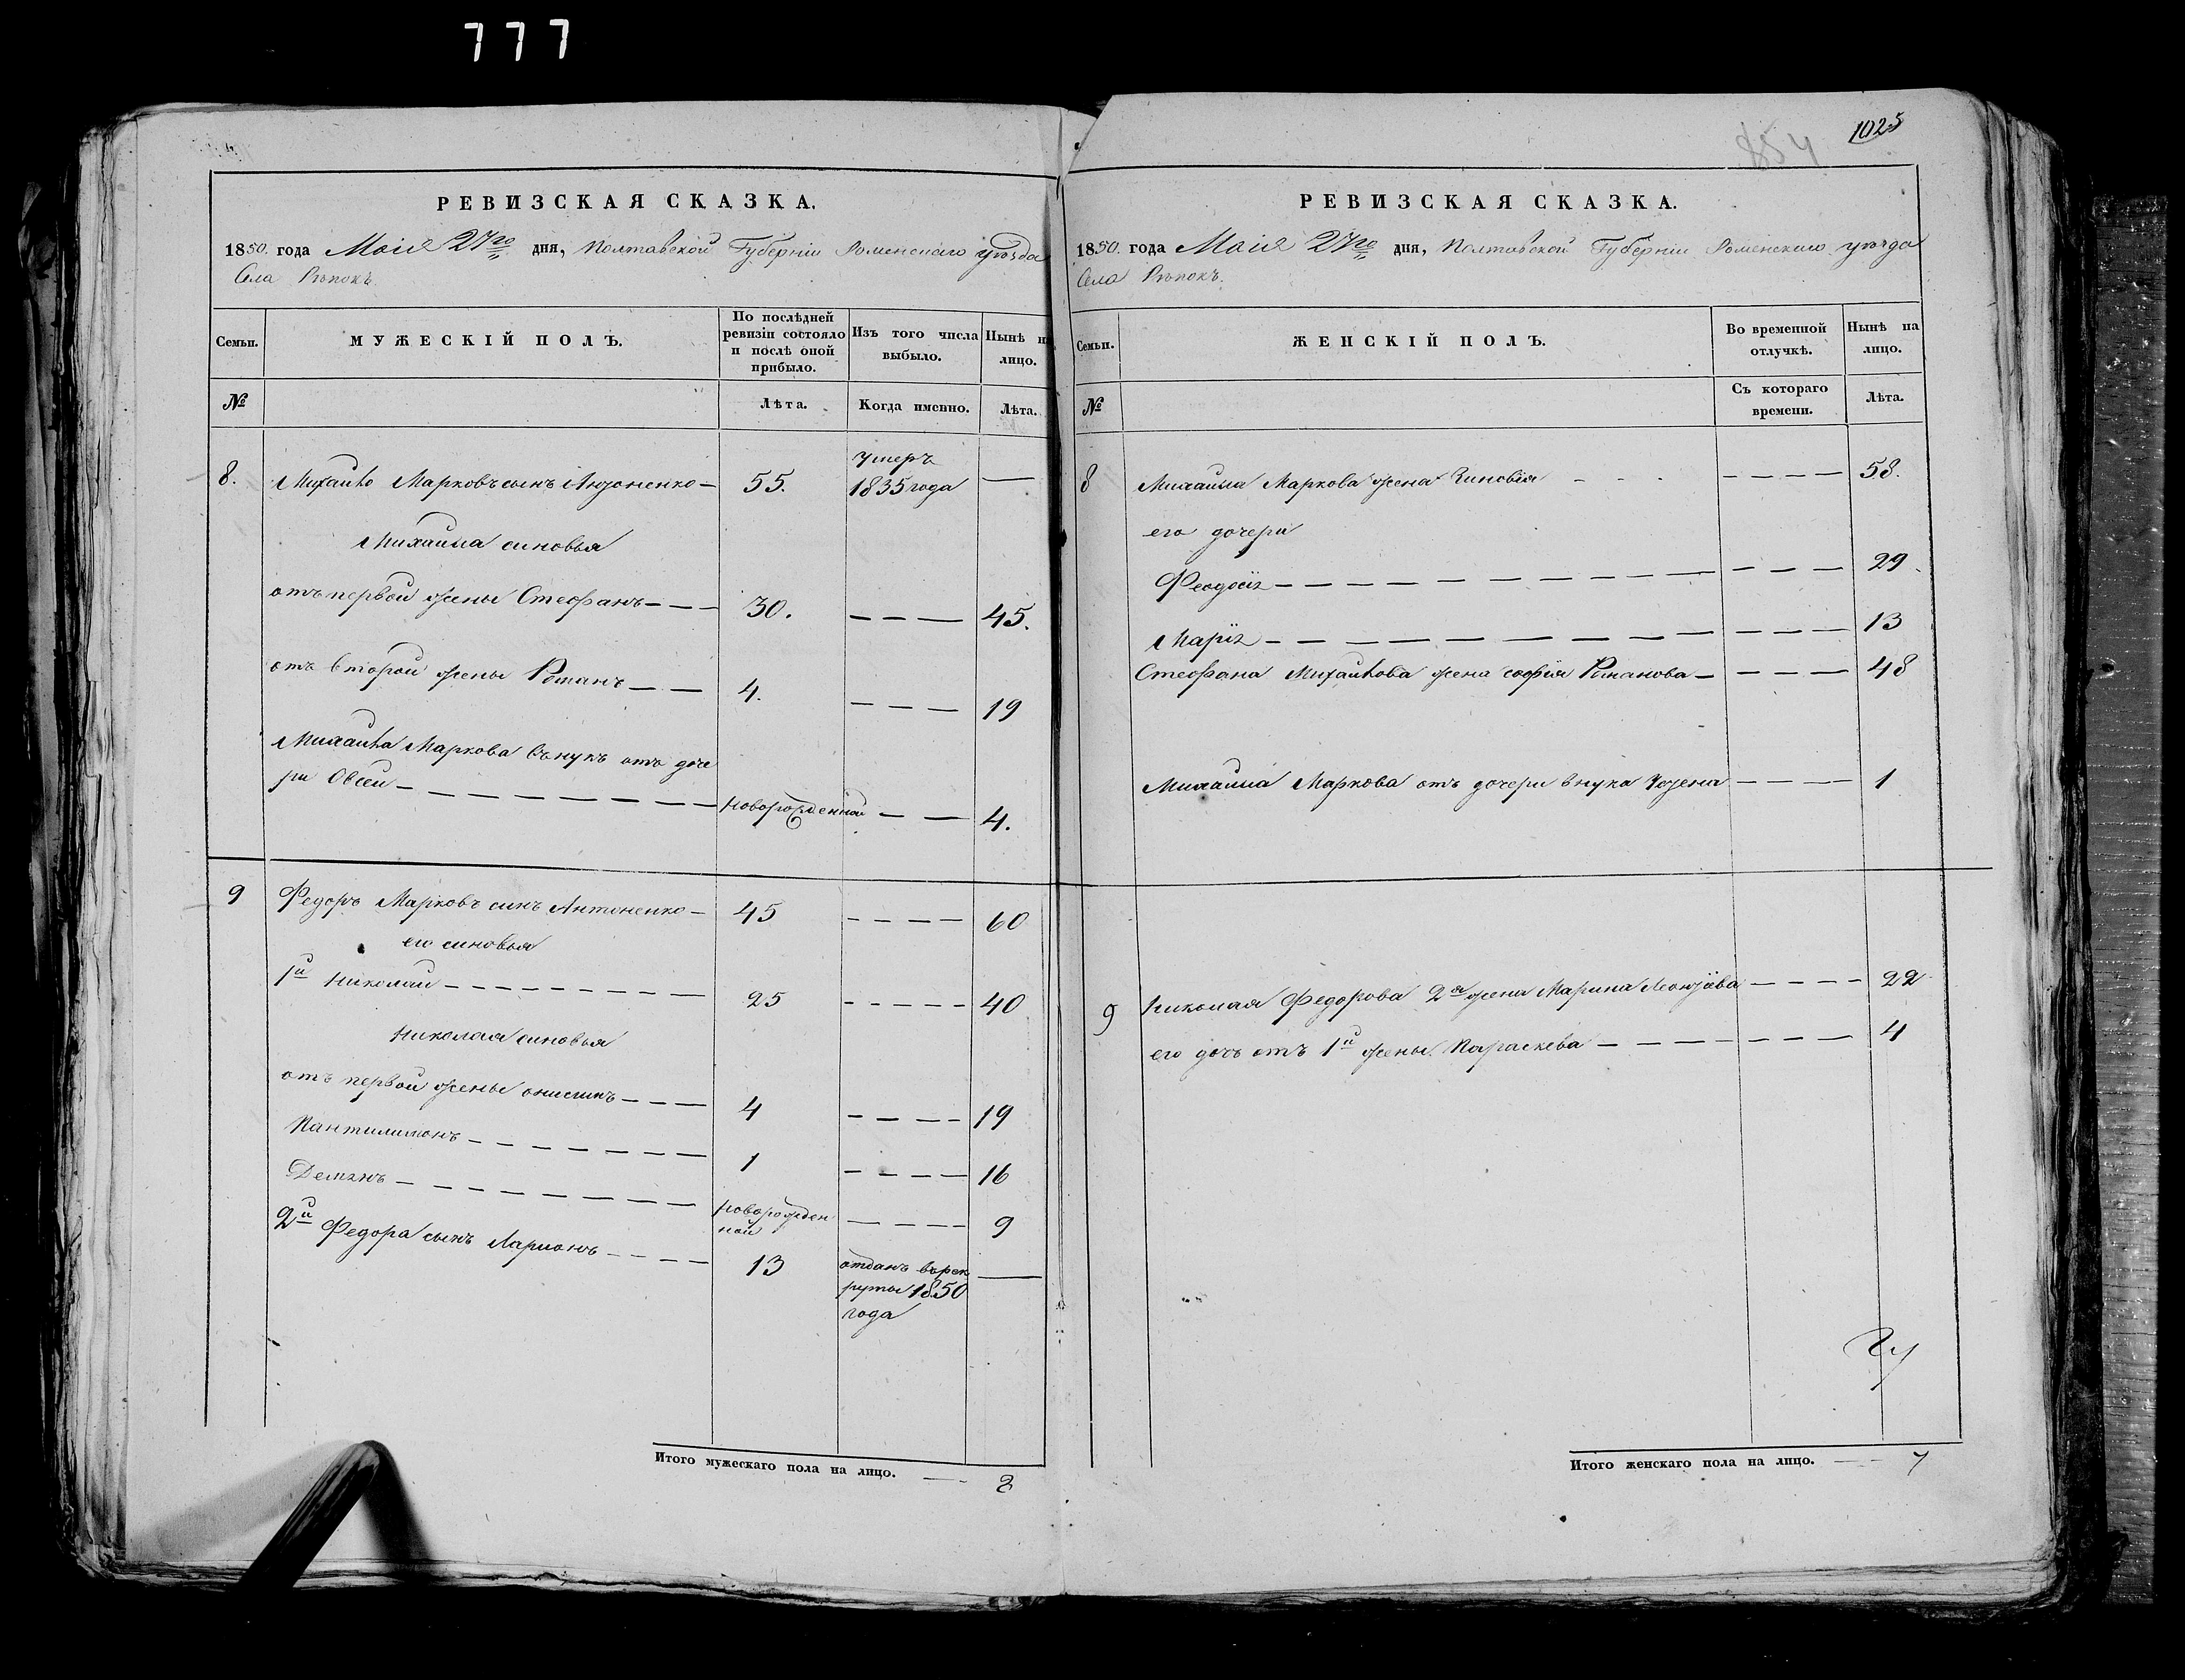 777
1025
854
РЕВИЗСКАЯ СКАЗКА.
1850. года Маія 27го дня, Полтавской Губерніи Роменскаго уѣзда
Села Рѣпокъ.
Семьи.
МУЖЕСКІЙ ПОЛЪ.
По послѣдней ревизіи состояло и послѣ оной прибыло.
Изъ того числа выбыло.
Нынѣ на лицо.
№
Лѣта.
Когда именно.
Лѣта.
8. Михайло Марковъ сынъ Антоненко — 55. умеръ 1835 года —
Михайла синовья
отъ первой жены Стефанъ — — — 30. — — — 45.
отъ второй жены Романъ — — 4. — — — 19
Михайла Маркова вънукъ отъ доче
ри Овсей — — — — — — — новорожденной — — 4.
9 Федоръ Марковъ синъ Антоненко — 45 — — — — 60
его синовья
1й Николай — — — — — — — — 25 — — — — — 40
Николая синовья
отъ первой жены онисимъ — — — 4 — — — — 19
Пантилимонъ — — — — — — — 1 — — — — 16
Демянъ — — — — — — — — новорожден
ной — — — — 9
2й Федора сынъ Ларионъ — — — — 13 отданъ върек
руты 1850
года —
Итого мужескаго пола на лицо. — — 8
РЕВИЗСКАЯ СКАЗКА.
1850. года Маія 27го дня, Полтавской Губерніи Роменскаго уѣзда
Села Рѣпокъ.
Семьи.
ЖЕНСКІЙ ПОЛЪ.
Во временной отлучкѣ.
Нынѣ на лицо.
№
Съ котораго времени.
Лѣта.
8 Михайла Маркова жена Зиновія - - - — — — — 58.
его дочери
Феодосія — — — — — — — — — — — 29.
Марія — — — — — — — — — — — — 13
Стефана Михайлова жена софія Романова — — — — — 48
Михайла Маркова отъ дочери внука — — — — 1
9 Николая Федорова 2я жена Марина — — — — 22
его дочь отъ 1й жены Параскева — — — — — — — 4
Итого женскаго пола на лицо. — — 7